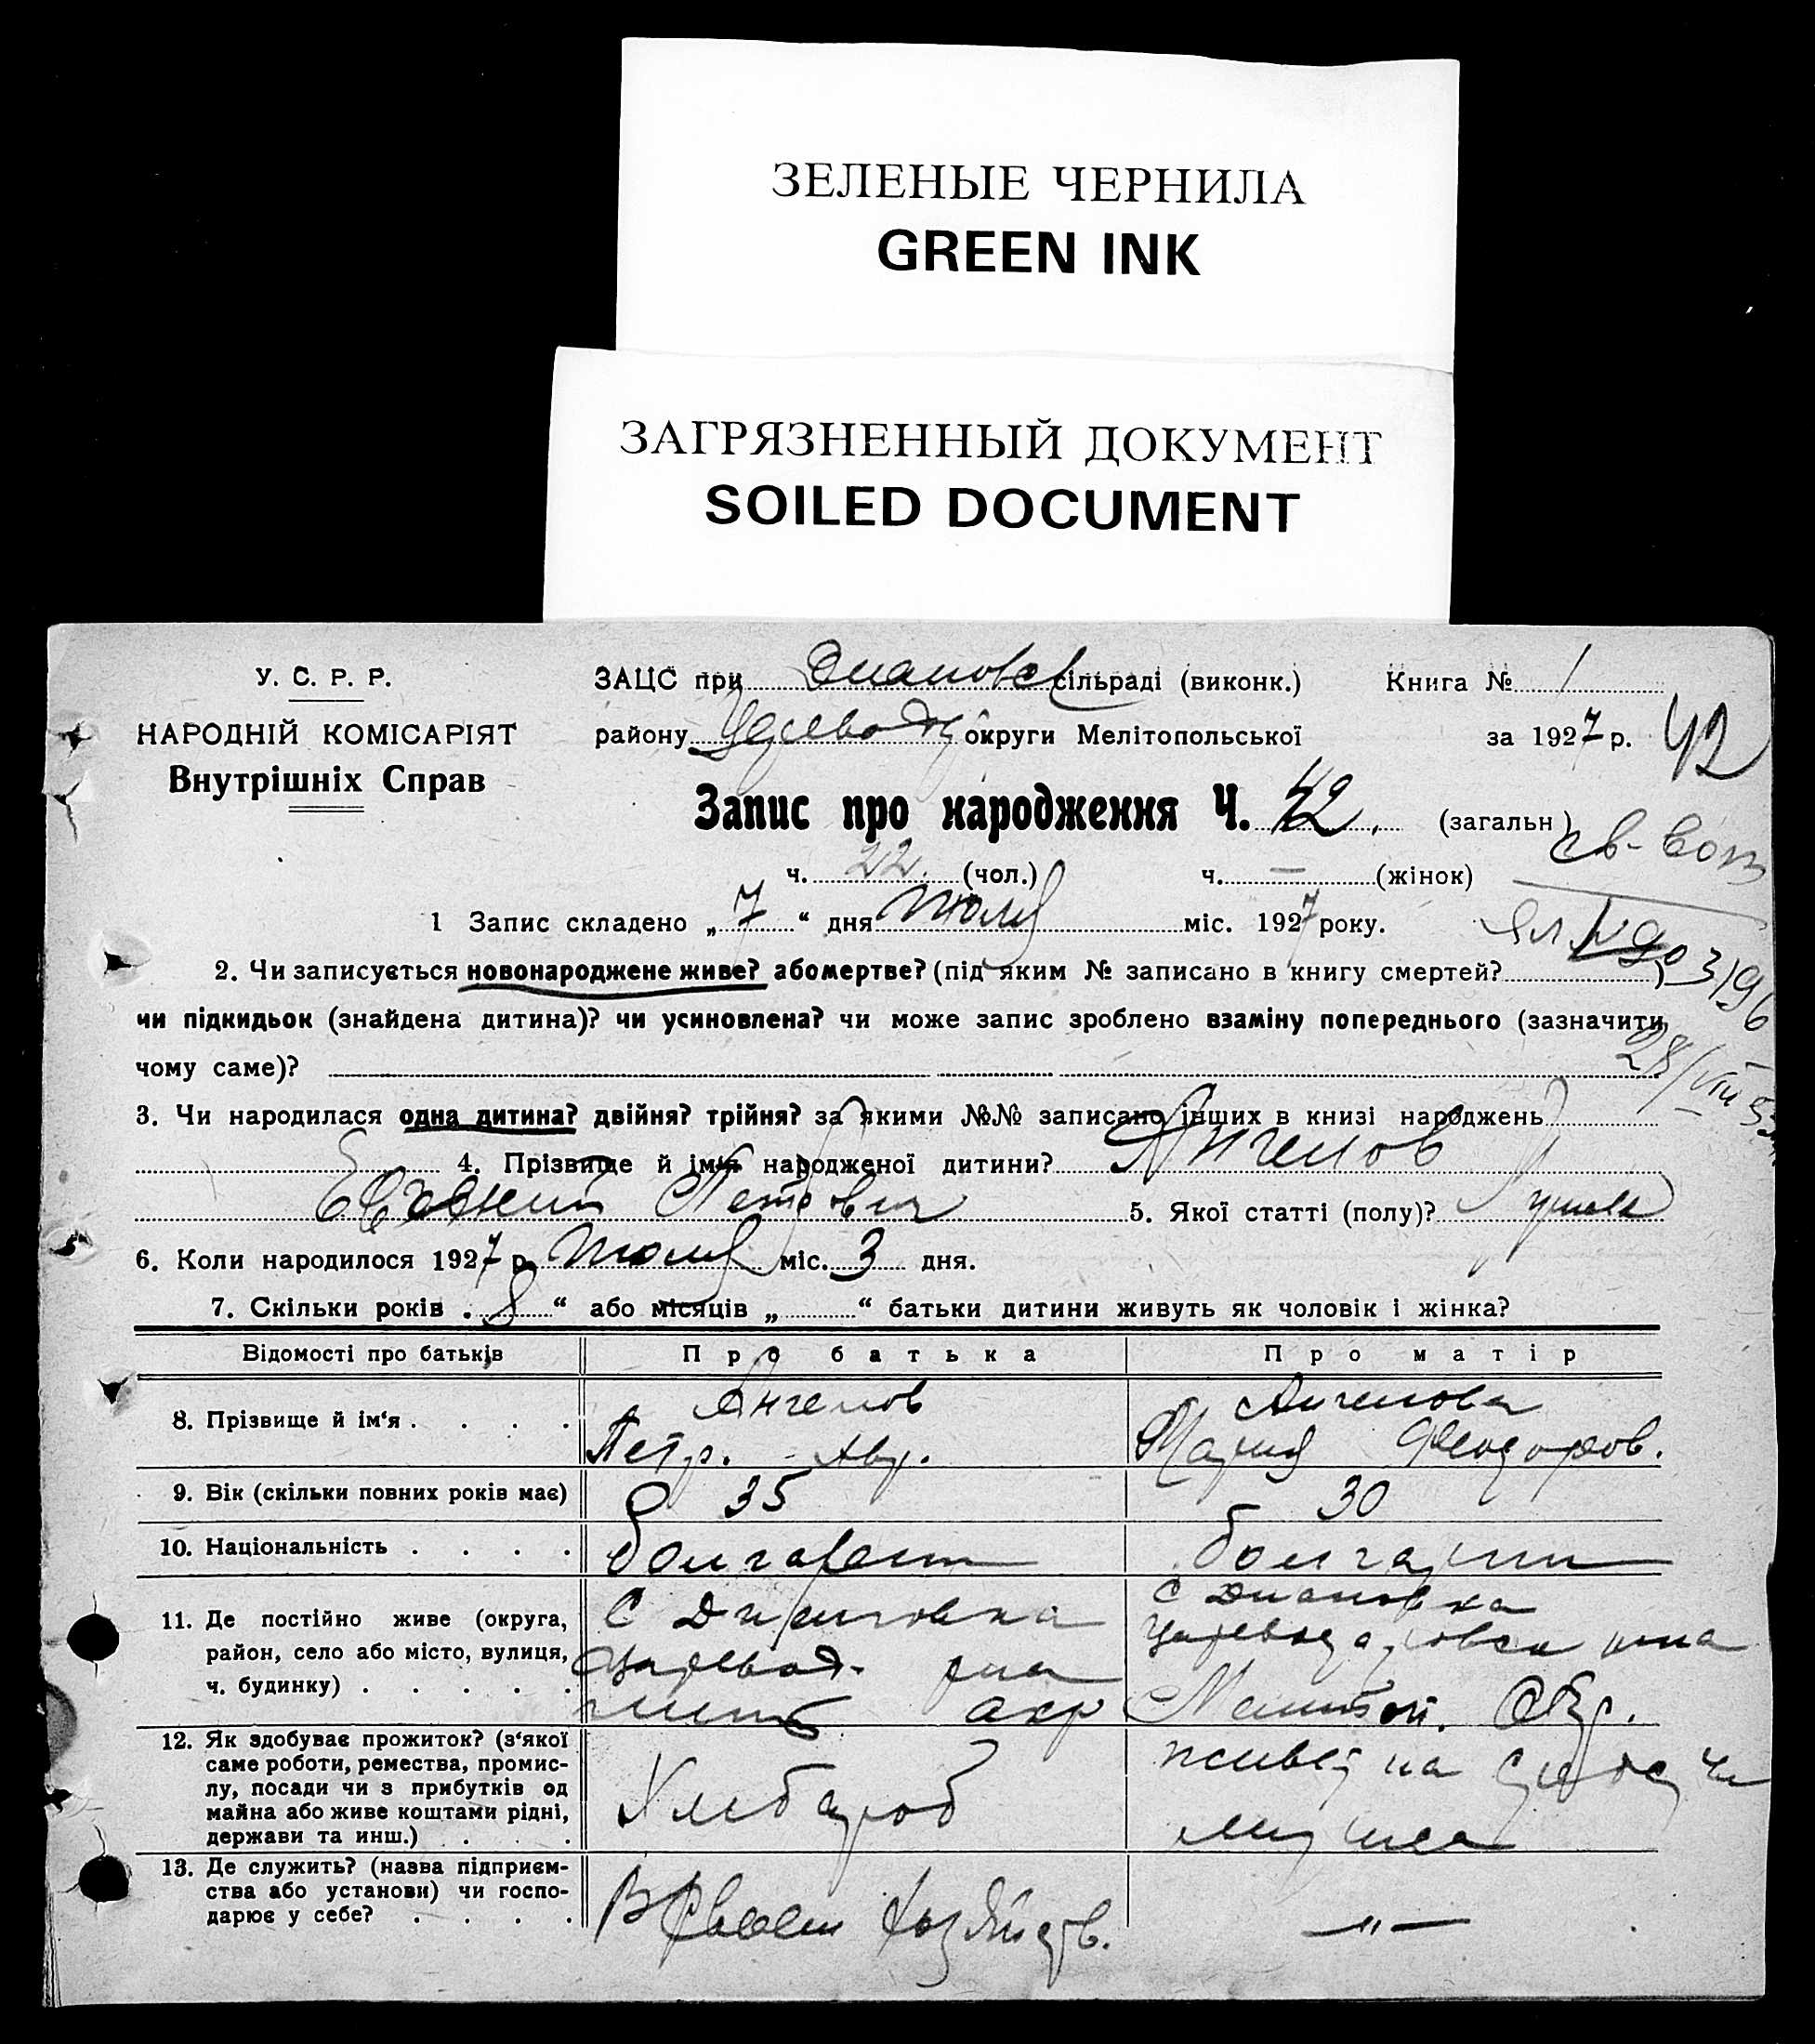 ЗЕЛЕНЫЕ ЧЕРНИЛА
GREEN INK
ЗАГРЯЗНЕННЫЙ ДОКУМЕНТ
SOILED DOCUMENT
У. С. Р. Р.
ЗАЦС при Диановск сільраді (виконк.) Книга № 1
НАРОДНІЙ КОМІСАРІЯТ
району Царевод округи Мелітопольської за 1927 р. 42
Внутрішніх Справ
Запис про народження Ч. 42. (загальн)
св-во
ч. 22. (чол.) ч. — (жінок)
1 Запис складено „ 7 “ дня Июля міс. 1927 року.
ЯЛ № 903196
2. Чи записується новонароджене живе? або мертве? (під яким № записано в книгу смертей? )
чи підкидьок (знайдена дитина)? чи усиновлена? чи може запис зроблено взаміну попереднього (зазначити
чому саме)?
28/VIII 5
3. Чи народилася одна дитина? двійня? трійня? за якими №№ записано інших в книзі народжень
4. Прізвище й ім'я народженої дитини? Ангелов
Евгений Петрович 5. Якої статті (полу)?
6. Коли народилося 1927 р. Июля міс. 3 дня.
7. Скільки років „ 8 “ або місяців „ “ батьки дитини живуть як чоловік і жінка?
Відомості про батьків Про батька Про матір
8. Прізвище й ім'я . . . . Ангелов Ангелова
Петр. Мария Феодоров.
9. Вік (скільки повних років має) 35 30
10. Національність . . . . болгарин болгарин
11. Де постійно живе (округа, С Диановка С Диановка
район, село або місто, вулиця, Царевод. р-на Цареводаровск р-на
ч. будинку) . . . . . Мелит окр Мелитоп. Окр.
12. Як здобуває прожиток? (з'якої
саме роботи, ремества, промис-
лу, посади чи з прибутків од
майна або живе коштами рідні,
держави та инш.) . . . Хлебороб живет на средства мужа
13. Де служить? (назва підприєм-
ства або установи) чи госпо-
дарює у себе? . . . . В Своем Хозяйств. —„—